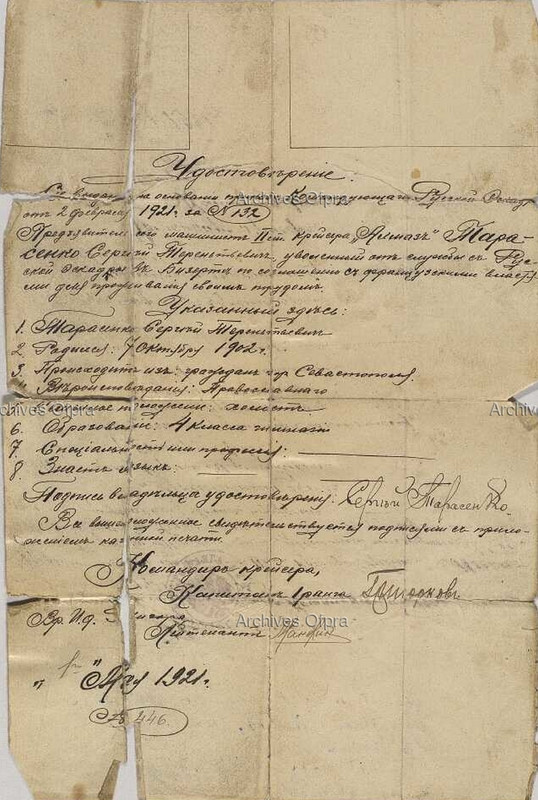 Удостовѣренiе.
на основанiи Русской Эскадр
отъ 2 февраля 1921 г. за № 132
Предъявитель сей машинистъ II ст. крейсера „Алмазъ" Тара-
сенко Сергѣй Терентьевичъ, уволенный отъ службы съ Рус-
ской Эскадры въ Бизертѣ по соглашенiю съ французскими властя-
ми для проживанiя своимъ трудомъ.
Указанный здѣсь:
1. Тарасенко Сергѣй Терентьевичъ
2. Родился: 7 Октября 1902 г.
3. Происходитъ изъ: гражданъ гор. Севастополя.
Вѣроисповѣданiя: Православнаго
холостъ
6. Образованiе: 4 класса гимназiи
7. Спецiальность или профессiя:
8. Знаетъ языкъ:
Подпись владѣльца удостовѣренiя: Сергѣй Тарасенко.
Все вышеизложенное свидѣтельствуется подписями съ прило-
женiемъ казенной печати.
Командиръ крейсера,
Капитанъ I ранга
Вр. И.д.
Лейтенантъ
„ " Мая 1921 г.
№ 446.
Archives Oipra
Archives Oipra
Archives Oipra
Archives Oipra